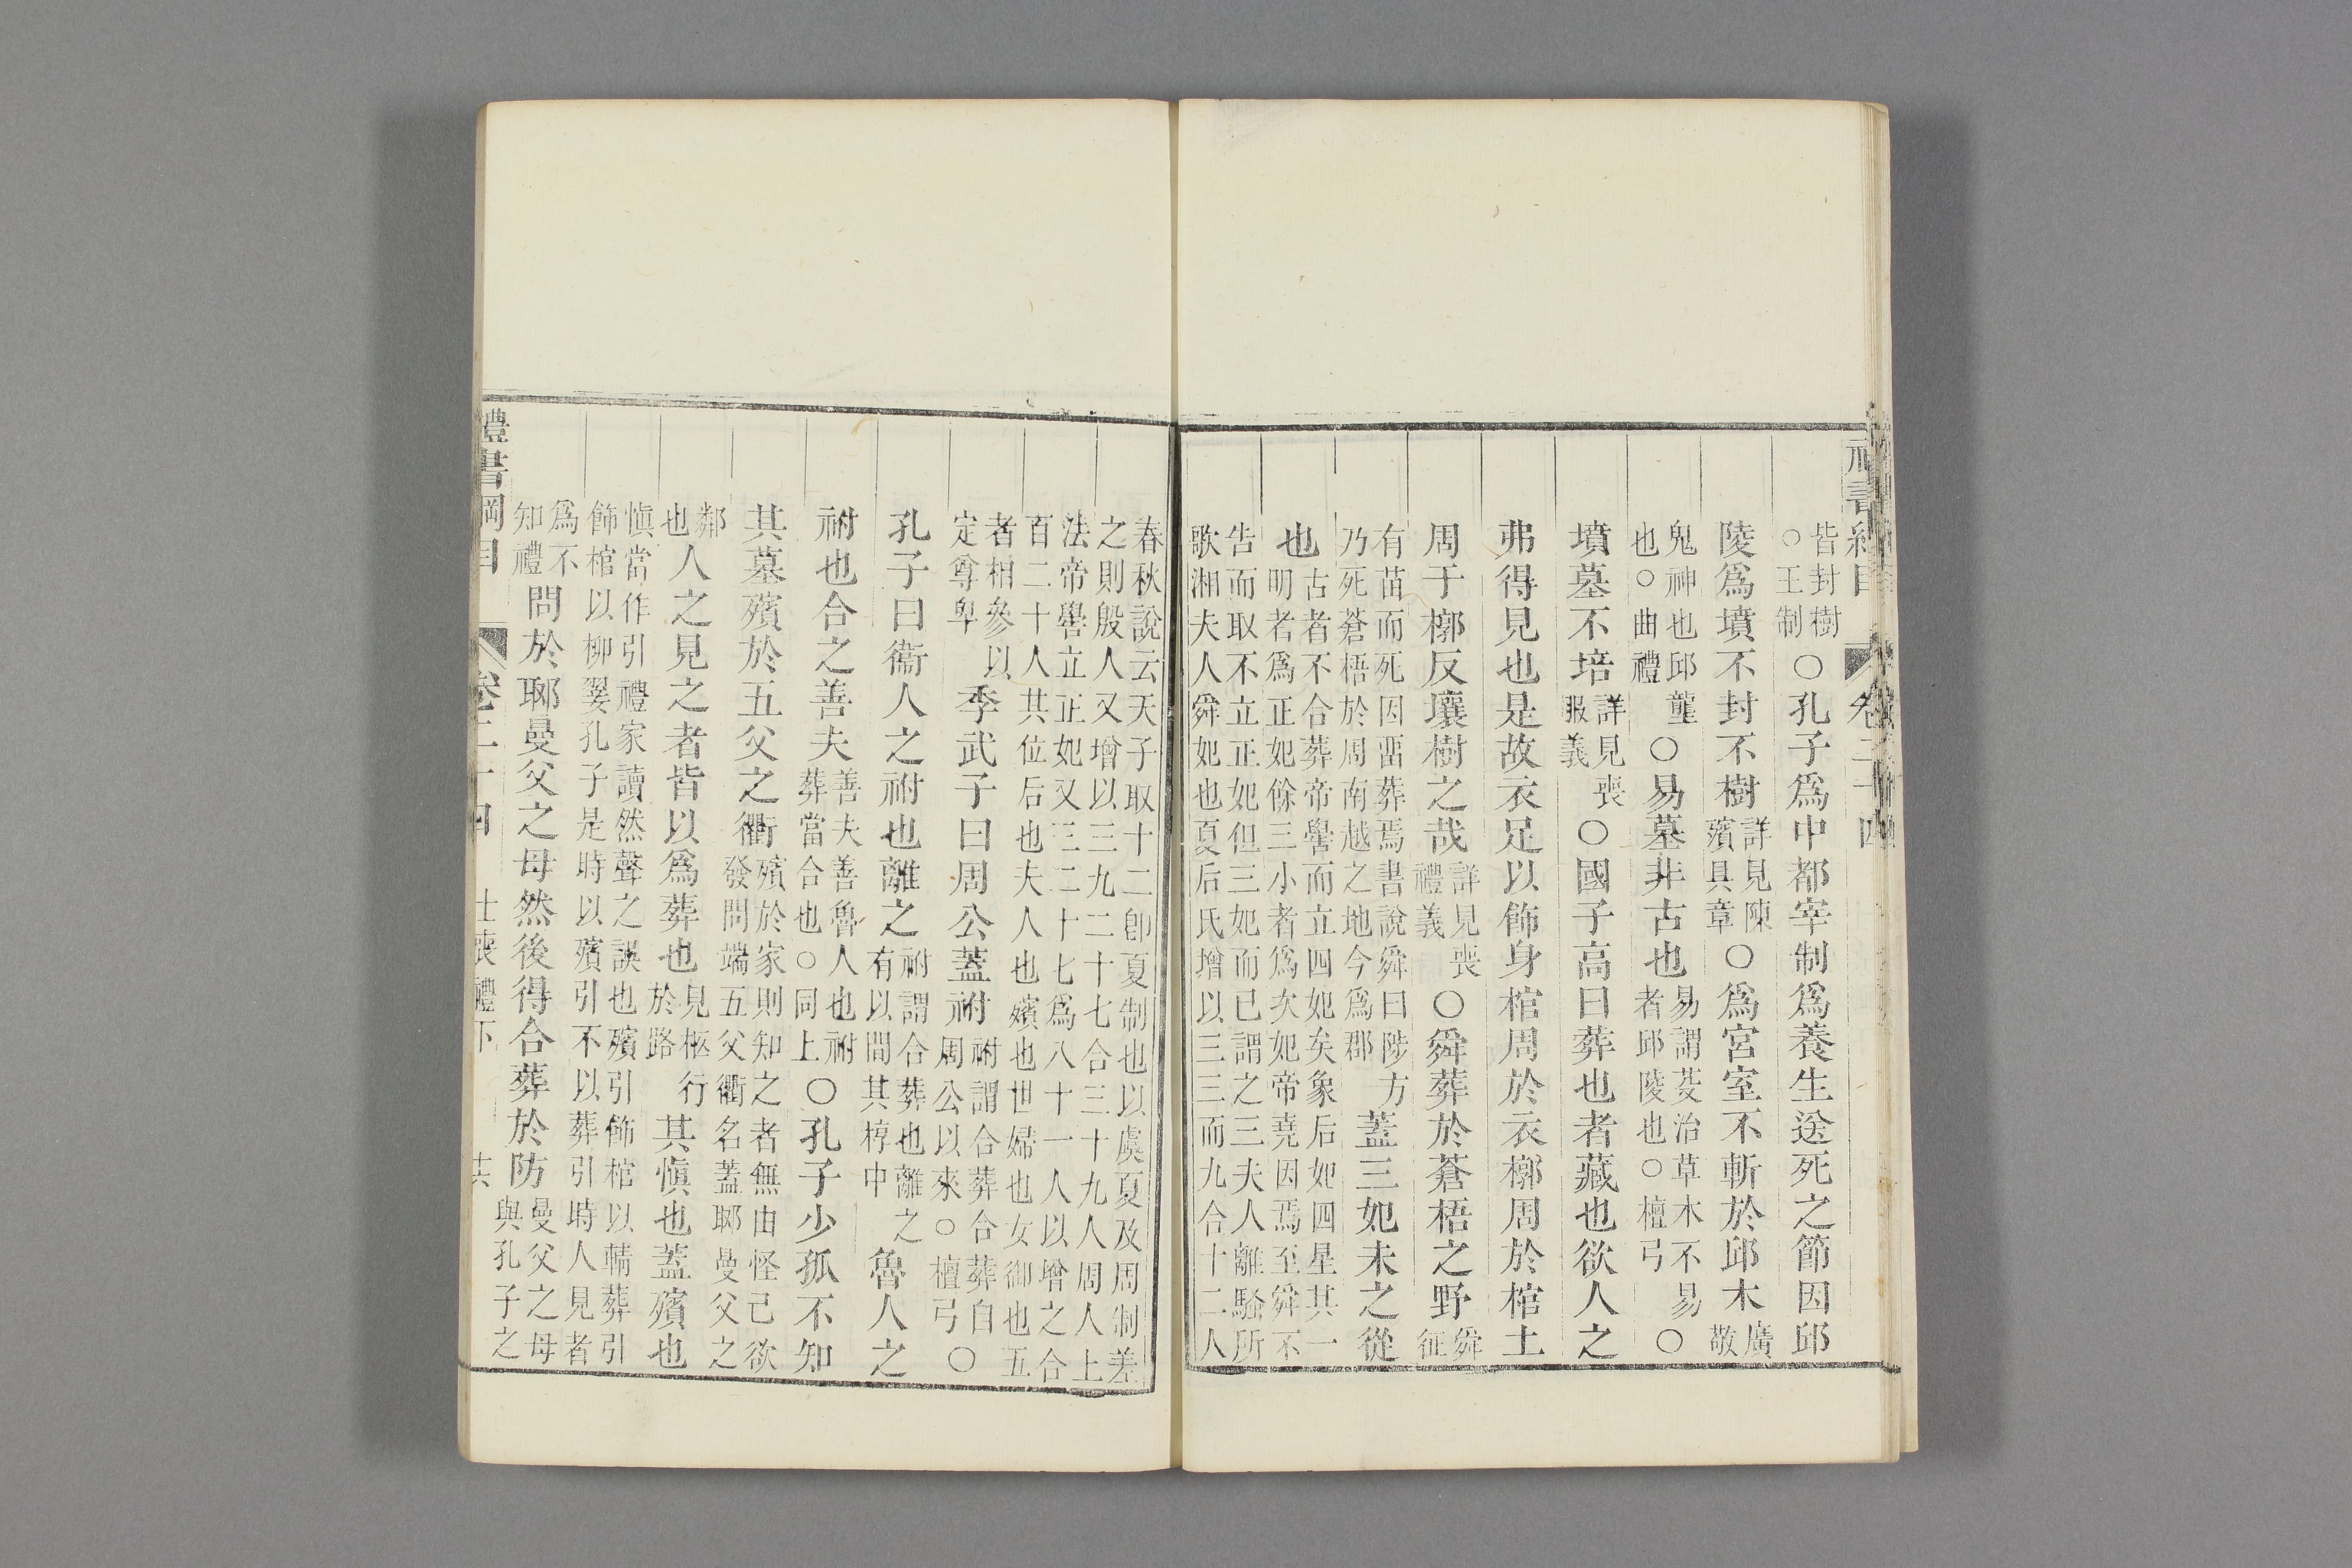 皆封樹○王制○孔子爲中都宰制爲養生送死之節因邱
陵爲墳不封不樹詳見陳殯具章○爲宮室不斬於邱木廣敬
鬼神也邱壟也○曲禮○易墓非古也易謂芟治草木不易者邱陵也○檀弓○
墳墓不培詳見喪服義○國子高曰葬也者藏也欲人之
弗得見也是故衣足以飾身棺周於衣槨周於棺土
周于槨反壤樹之哉詳見喪禮義○舜葬於蒼梧之野舜征
有苗而死因畱葬焉書說舜曰陟方乃死蒼梧於周南越之地今爲郡蓋三妃未之從
也古者不合葬帝嚳而立四妃矣象后妃四星其一明者爲正妃餘三小者爲次妃帝堯因焉至舜不
告而取不立正妃但三妃而已謂之三夫人離騷所歌湘夫人舜妃也夏后氏增以三三而九合十二人
春秋說云天子取十二卽夏制也以虞夏及周制差之則殷人又增以三九二十七合三十九人周人上
法帝嚳立正妃又三二十七爲八十一人以增之合百二十人其位后也夫人也嬪也世婦也女御也五
者相參以定尊卑季武子曰周公蓋祔祔謂合葬合葬自周公以來○檀弓○
孔子曰衞人之祔也離之祔謂合葬也離之有以間其椁中魯人之
祔也合之善夫善夫善魯人也祔葬當合也○同上○孔子少孤不知
其墓殯於五父之衢殯於家則知之者無由怪己欲發問端五父衢名蓋郰曼父之
鄰也人之見之者皆以爲葬也見柩行於路其愼也蓋殯也
愼當作引禮家讀然聲之誤也殯引飾棺以輤葬引飾棺以柳翣孔子是時以殯引不以葬引時人見者
爲不知禮問於郰曼父之母然後得合葬於防曼父之母與孔子之
禮書綱目 卷二十四 士喪禮下